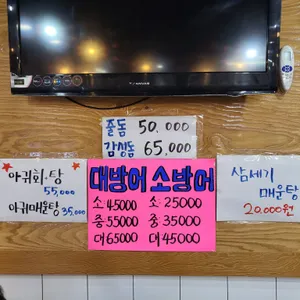 줄돔 50.000
감성돔 65.000
아귀회·탕
55,000
아귀매운탕 35,000
대방어 소방어
소 45000 소 25000
중 55000 중 35000
대 65000 대 45000
삼세기
매운탕
20.000원